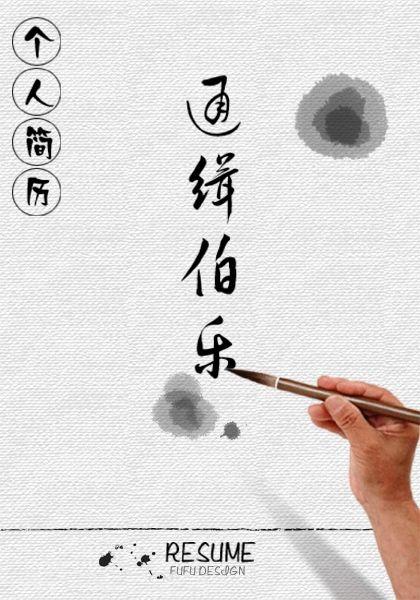 个人简历
通缉伯乐
RESUME
FUFU DESIGN